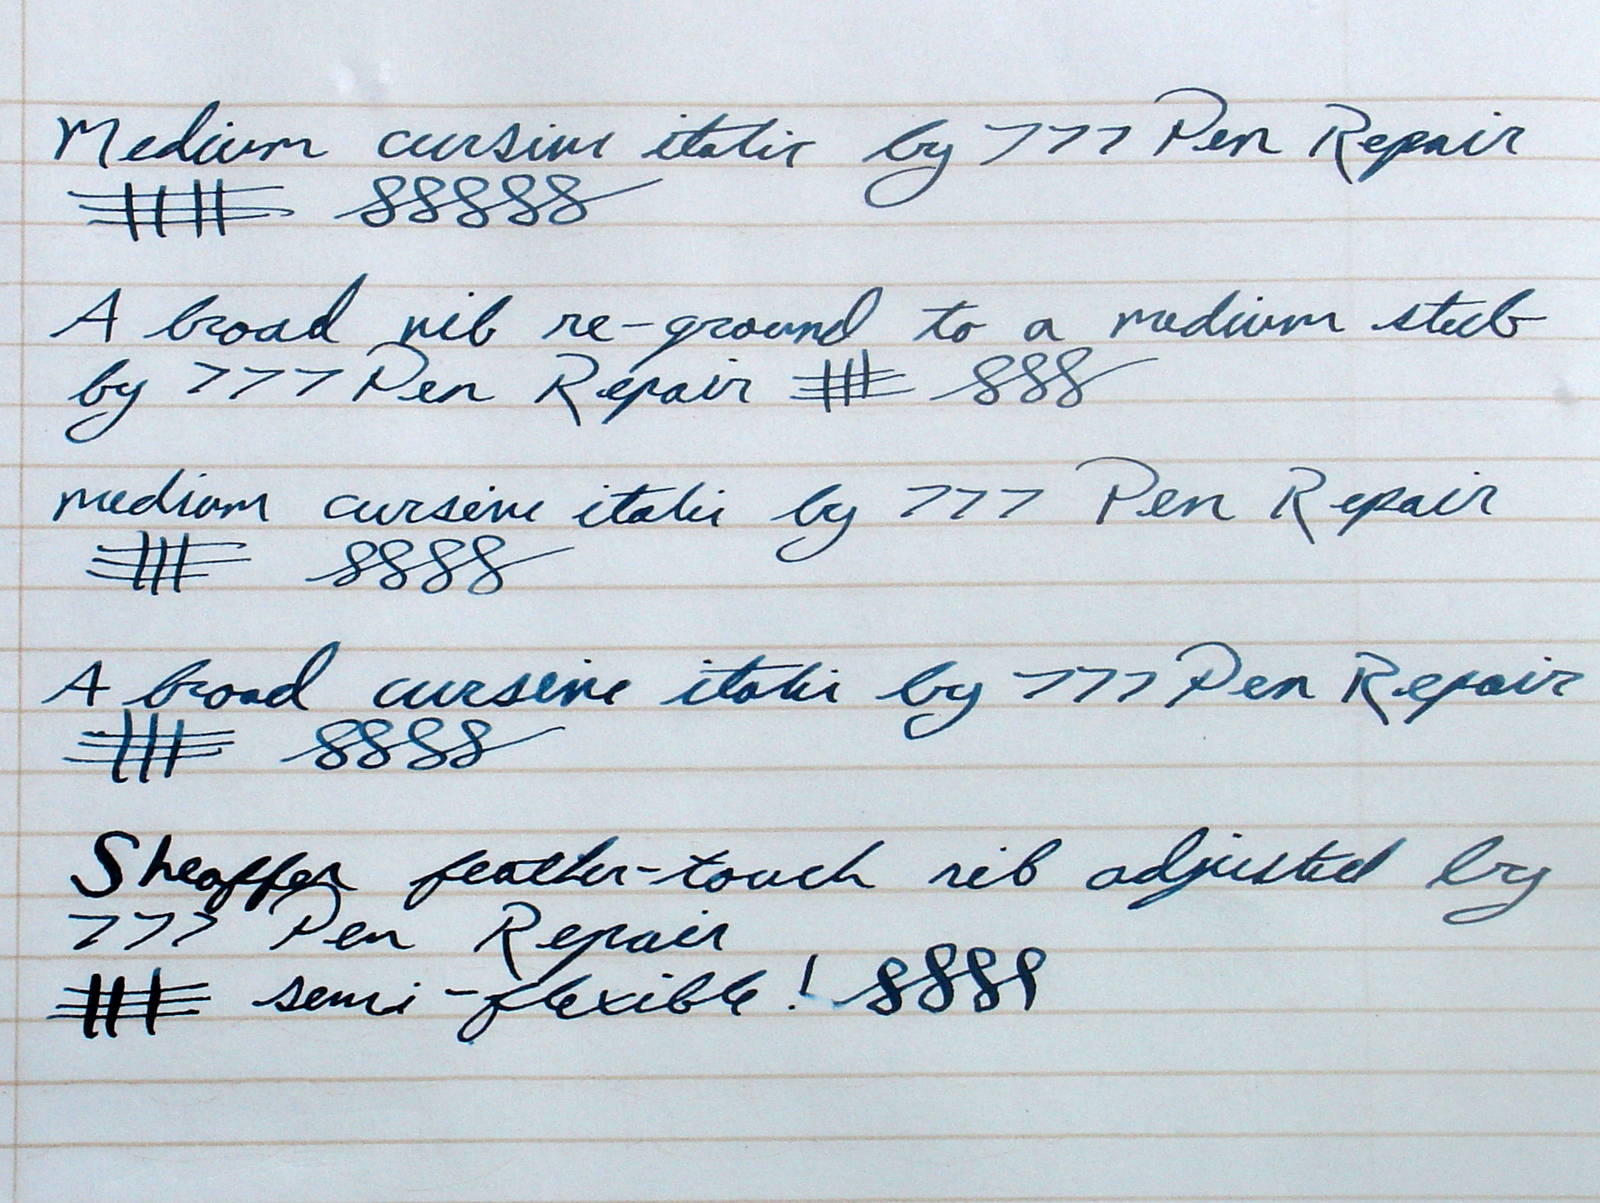 Medium cursive italic by 777 Pen Repair
A broad nib re-ground to a medium stub
by 777 Pen Repair
medium cursive italic by 777 Pen Repair
A broad cursive italic by 777 Pen Repair
Sheaffer feather-touch nib adjusted by
777 Pen Repair
semi-flexible!